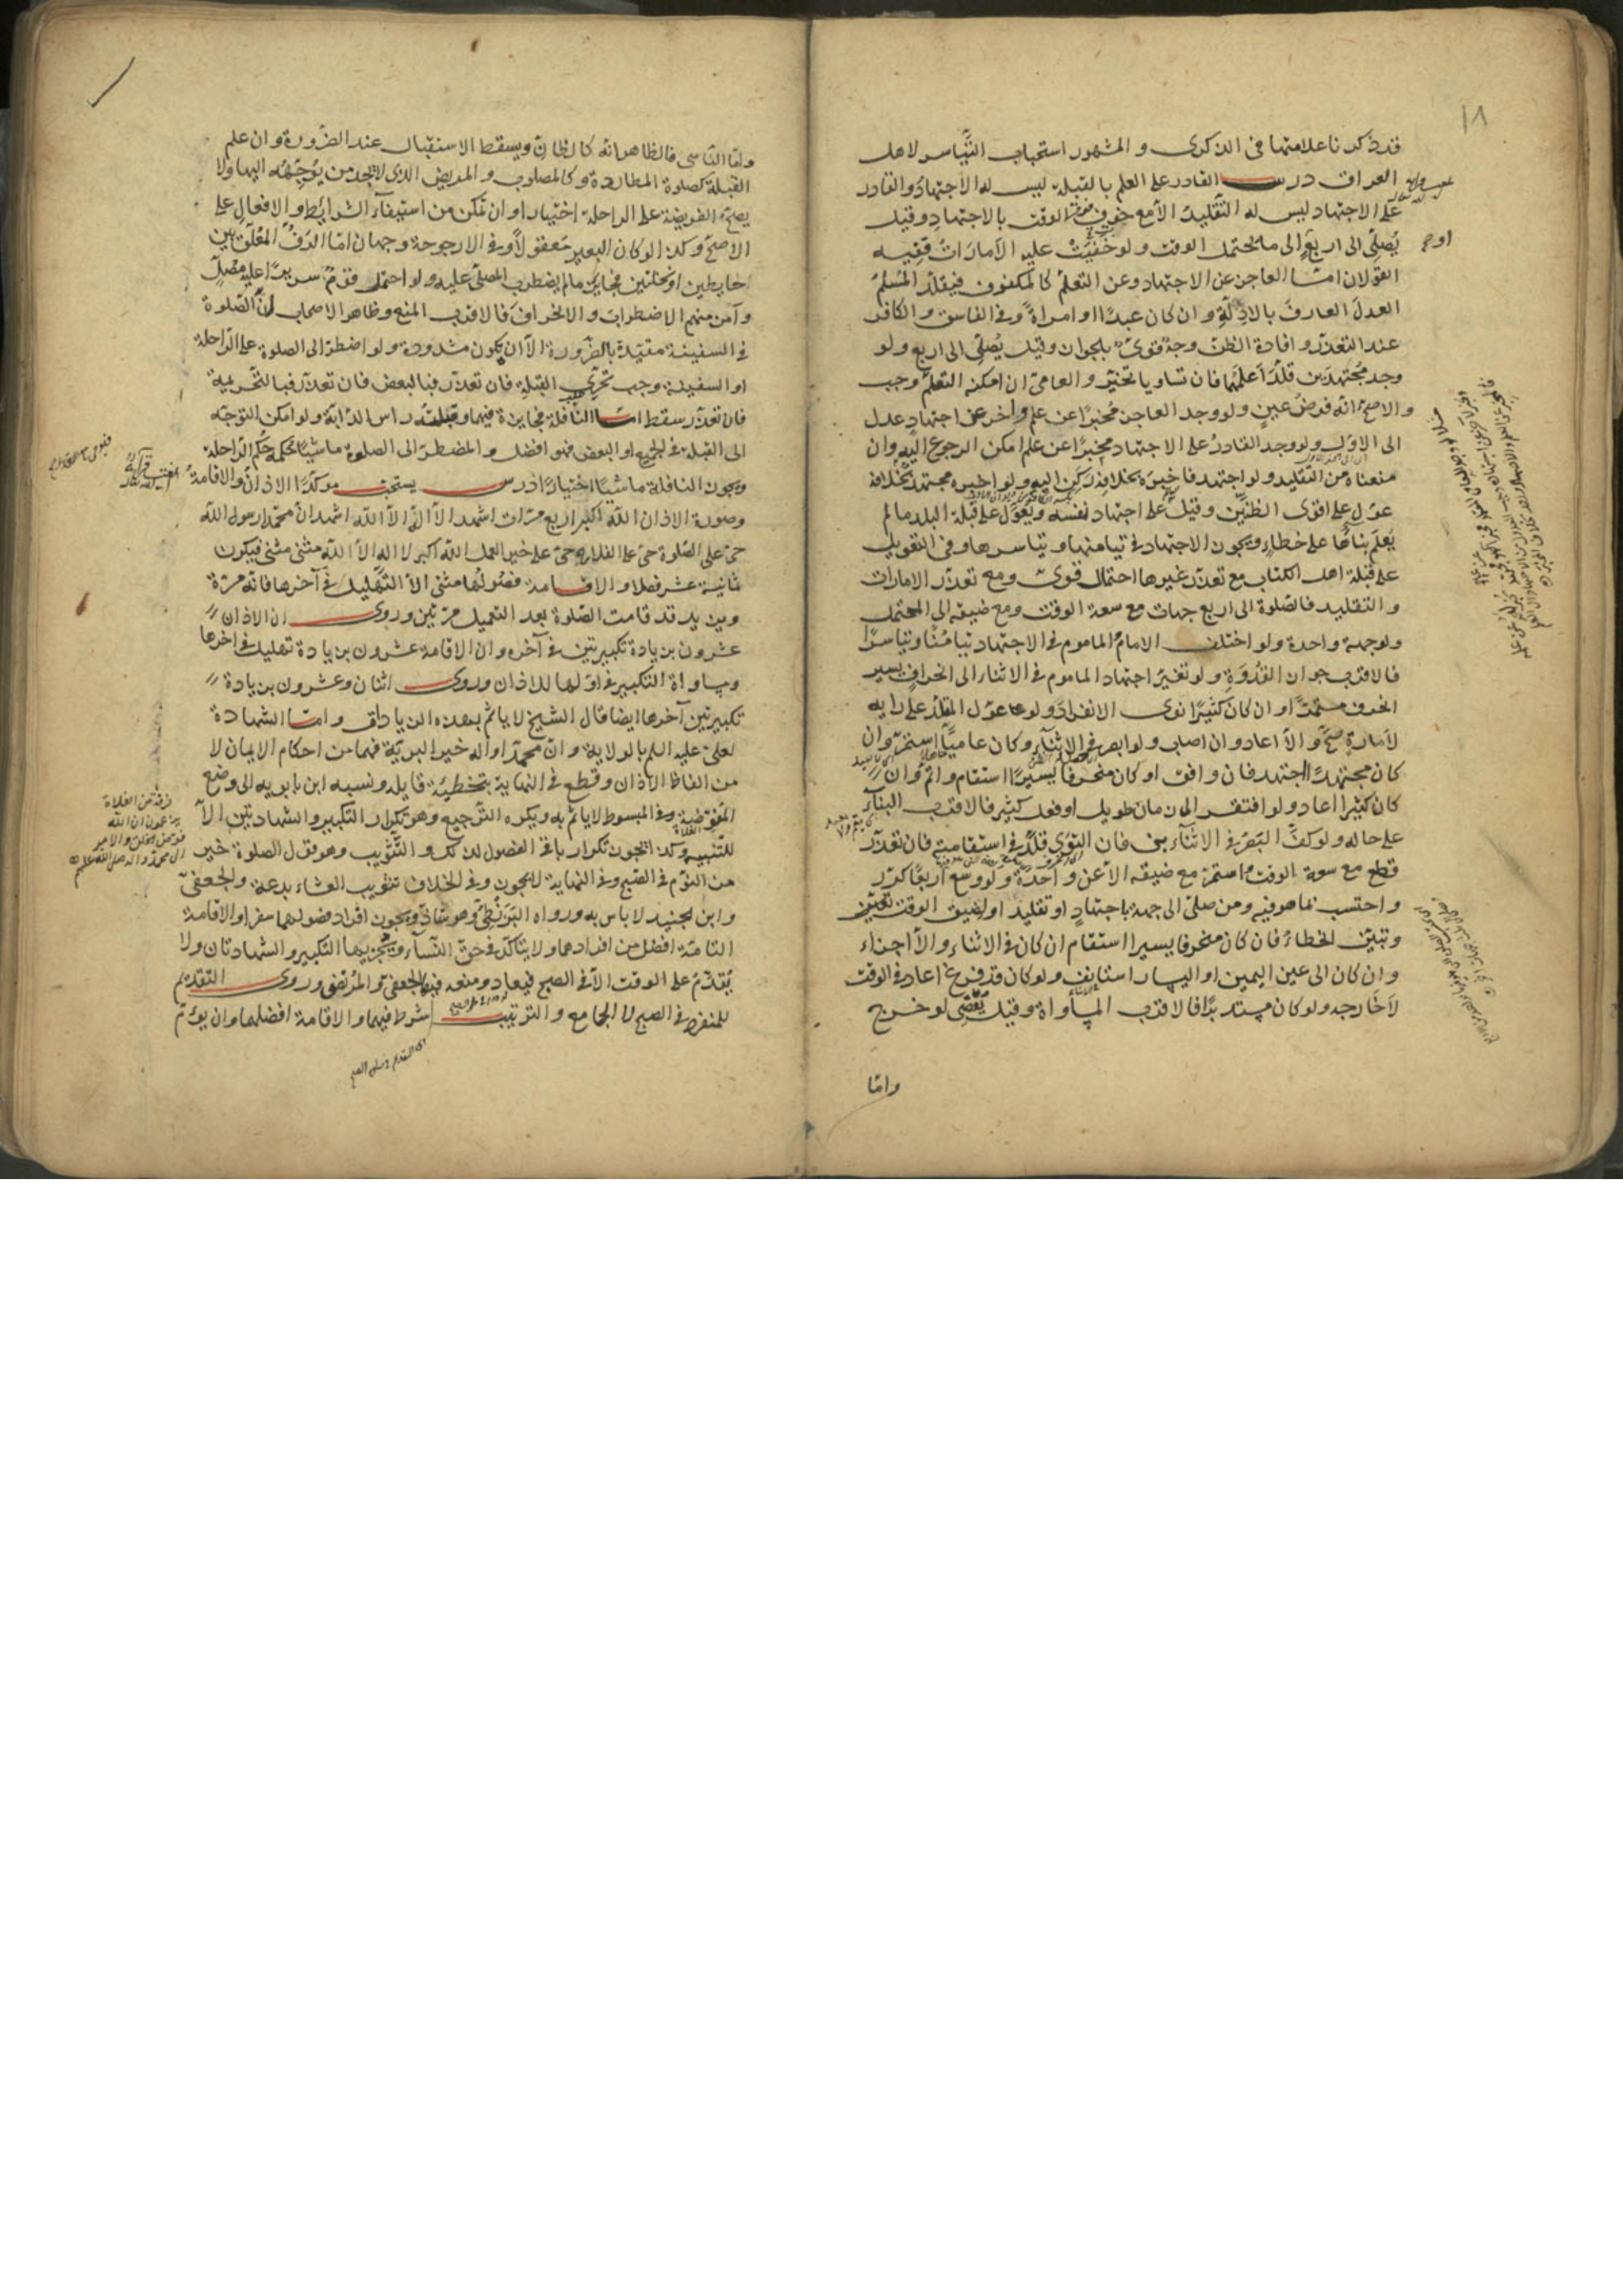 ١٨
قد ذكرنا علامتها فى الذكرى و المشهور استحباب التياسر لاهل
العراق درس القادر على العلم بالقبلة ليس له الاجتهاد والقادر
على الاجتهاد ليس له التقليد الا مع خوف فوت الوقت بالاجتهاد وقيل
يُصلّى الى اربع الى ما يحتمل الوقت ولو خَفِيَتْ عليه الاَمارَاتُ ففيه
القولان امّا العاجز عن الاجتهاد وعن التعلم كالمكفوف فيقلد المُسْلِمَ
العدلَ العارفَ بالادلّةِ وان كان عبدًا او امراةً وفى الفاسق و الكافر
عند التعذّر و افادة الظن وجهٌ قوىٌ بالجواز وقيل يُصلّى الى اربع ولو
وجد مجتهدَين قلّدَ اَعلَمَهما فان تساويا تخيّر و العامىّ ان امكنه التعلم وجب
والاصحّ انّه فرضُ عينٍ ولو وجد العاجز مُخبِرًا عن علم واخر عن اجتهادٍ عدل
الى الاوّل ولو وجد القادرُ على الاجتهاد مخبرًا عن علم امكن الرجوع اليه وان
منعناه من التقليد ولو اجتهد فاخبره بخلافه ركن اليه ولو اخبره مجتهد بخلافه
عوّل على اقوى الظنّين وقيل على اجتهاد نفسه ويُعَوَّلُ على قبلة البلد مالم
يُعلَم بناؤها على خطاءٍ ويجوز الاجتهاد فى تيامنها وتياسرها وفى التعويل
على قبلة اهل الكتاب مع تعذّر غيرها احتمال قوىّ ومع تعذّر الامارات
و التقليد فالصلوة الى اربع جهات مع سعة الوقت ومع ضيقه الى المحتمل
ولو جهة واحدة ولو اختلف الامامُ والماموم فى الاجتهاد تيامُنًا وتياسرًا
فالاقرب جواز القُدوَةِ ولو تغيّر اجتهاد الماموم فى الاثناء الى انحرافٍ يسير
انحرف مستمرًّا وان كان كثيرًا نوى الانفراد ولو عوّل المقلّد على رايه
لاَمارةٍ صحّ و الاّ اعاد وان اصاب ولو ابصر فى الاثناء وكان عاميًّا استمرّ وان
كان مجتهدًا اجتهد فان وافق او كان منحرفا يسيرًا استقام واتمّ وان
كان كثيرا اعاد ولو افتقر الى زمان طويل او فعل كثير فالاقرب البناءُ
على حاله ولو كفّ البَصَرُ فى الاثناء بنى فان التوى قلّد فى استقامته فان تعذّر
قطع مع سعة الوقت واستمرّ مع ضيقه الاّ عن واحدة ولو وسع اربعًا كرّر
واحتسب بما هو فيه ومن صلّى الى جهة باجتهادٍ او تقليد او لضيق الوقت
وتبيّن الخطاءُ فان كان منحرفا يسيرا استقام ان كان فى الاثناء و الاّ اجزاء
وان كان الى عين اليمين او اليسار استانف ولو كان قد فرغ اعاد فى الوقت
لا خارجه ولو كان مستدبرًا فالاقرب المساواة وقيل يَقْضِى لو خرج
وامّا
وامّا النّاسى فالظاهر انّه كالظانّ ويسقط الاستقبال عند الضّرورة وان علم
القبلة كصلوة المطاردة وكالمصلوب و المريض الذى لا يجد من يوجّهه اليها ولا
يصحّ الفريضة على الراحلة اختيارا وان تمكن من استيفاء الشرائط و الافعال على
الاصحّ وكذا لو كان البعير معقولاً وفى الارجوحة وجهان امّا الرَفُّ المُعَلّق بين
حايطين او نخلتين فجايز مالم يضطرب المصلّى عليه ولو احتمل قومٌ سريرًا عليه مُصَلٍّ
وآمن منهم الاضطراب و الانحراف فالاقرب المنع وظاهر الاصحاب انّ الصّلوة
فى السفينة مقيّدة بالضّرورة الاّ ان يكون مشدودة ولو اضطرّ الى الصلوة على الرّاحلة
او السفينة وجب تحرّى القبلة فان تعذّر فبالبعض فان تعذّر فبالتّحريمة
فان تعذّر سقط امّا النّافلة فجايزة فيهما وقبلته راس الدّابّة ولو امكن التوجّه
الى القبلة فى الجميع او البعض فهو افضل و المضطرّ الى الصلوة ماشيًا حكمه حُكم الرّاحلة
ويجوز النافلة ماشيًا اختيارًا درس يستحبّ موكّدًا الاذان و الاقامة
وصورة الاذان اللّه اكبر اربع مرّات اشهد الاّ اله الاّ اللّه اشهد انّ محمّد ارسول اللّه
حىّ على الصّلوة حىّ على الفلاح حىّ على خير العمل اللّه اكبر لا اله الاّ اللّه مثنى مثنى فيكون
ثمانية عشر فصلا و الاقامة فصُولُها مثنى الاّ التّهليل فى آخرها فانّه مرّة
ويزيد قد قامت الصّلوة بعد التعميل مرّتين وروى انّ الاذان
عشرون بزيادة تكبيرتين فى آخره وانّ الاقامة عشرون بزيادة تهليل فى اخرها
ومساواة التكبير فى اوّلها للاذان وروى اثنان وعشرون بزيادة
تكبيرتين آخرها ايضا قال الشيخ لا ياثم بهذه الزيادات و امّا الشهادة
لعلىّ عليه السلم بالولاية وانّ محمّدا واله خير البريّة فهما من احكام الايمان لا
من الفاظ الاذان وقطع فى النهاية بتخطئة قايله ونسبه ابن بابويه الى وضع
المفوّضة وفى المبسوط لا ياثم به ويكره الترجيع وهو تكرار التكبير والشهادتين الاّ
للتّنبيه وكذا يجوز تكرار باقى الفصول لذلك و التّثويب وهو قول الصلوة خير
من النّوم فى الصّبح وفى النهاية لا يجوز وفى الخلاف تثويب العشاء بدعة والجعفى
وابن الجنيد لا باس به ورواه البزنطىّ وهو شاذّ ويجوز افراد فصولهما سفرا والاقامة
التامّة افضل من افرادهما ولا يتاكّد فى حقّ النّساء ويجزيها التكبير و الشهادتان ولا
يُتقدّمُ على الوقت الاّ فى الصبح فيعاد ومنعه فيها الجعفىّ و المُرتضى وروى التقديم
للمنفرد فى الصبح لا الجامع و الترتيب شرط فيهما والاقامة افضلهما وان يؤمّ
فرقة من الغلاة
يزعمون ان اللّه
فوّض الخلق والامر
الى محمد